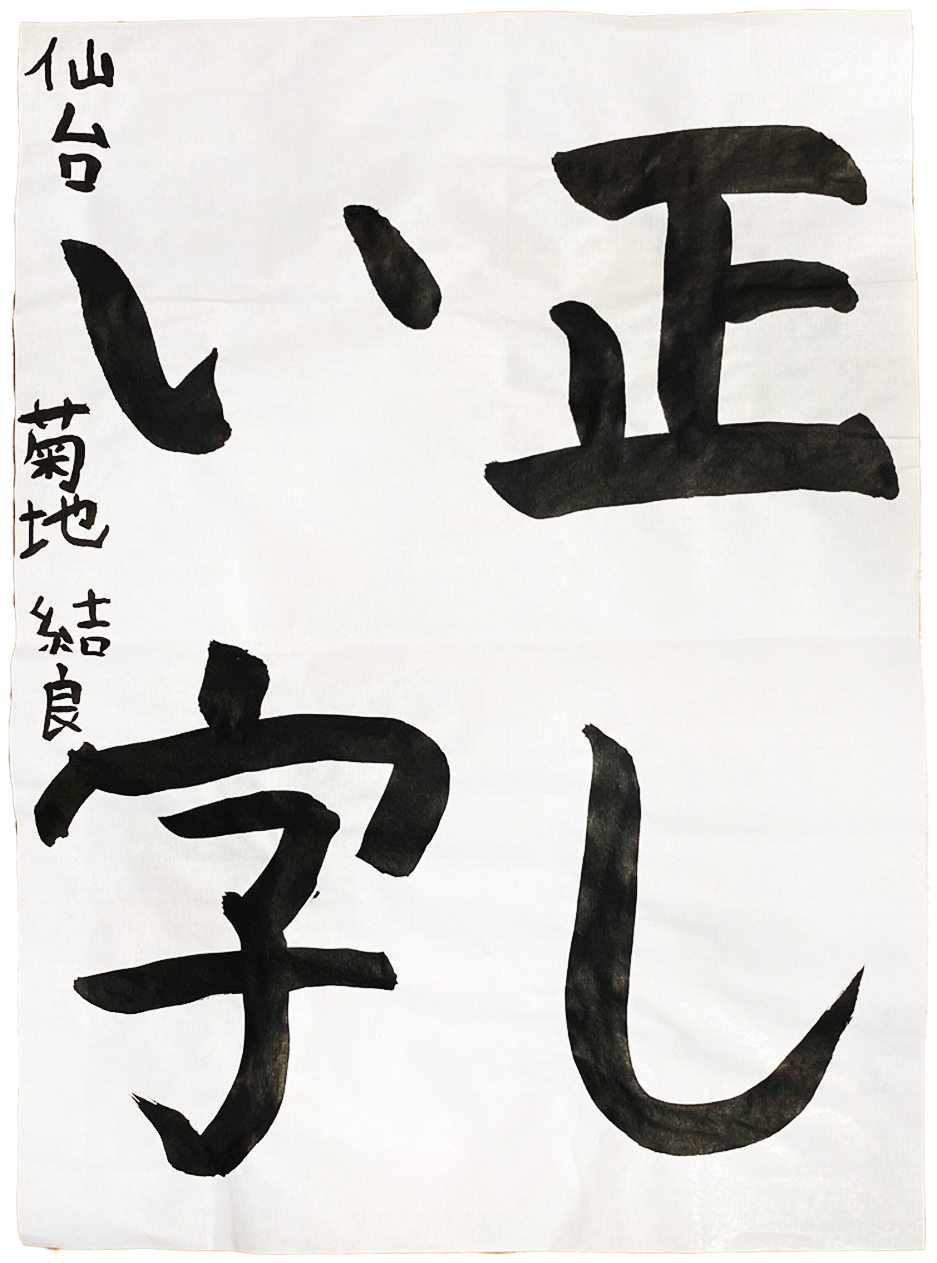 正し
い字
仙台 菊地 結良